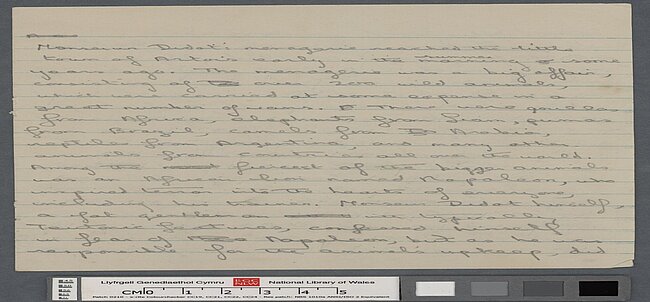 Monsieur Didot's menagerie reached the little
town of Artois early in the summer some
years ago. The menagerie was a big affair,
consisting of over 200 wild animals,
which were carried at some expense in a
great number of vans. There were gorillas
from Africa, elephants from Siam, pumas
from Brazil, camels from Arabia,
reptiles from Argentina, and many other
animals from countries all over the world.
Among the fiercest of the bigger animals
was an African lion named Napoleon, who
inspired terror into the hearts of everyone,
including his trainer. Monsieur Didot himself,
a fat gentleman with typically
Teutonic features, confessed himself
in fear of Napoleon, but as he was
responsible for the animal's upkeep, did
Llyfrgell Genedlaethol Cymru National Library of Wales
CM 0 1 2 3 4 5